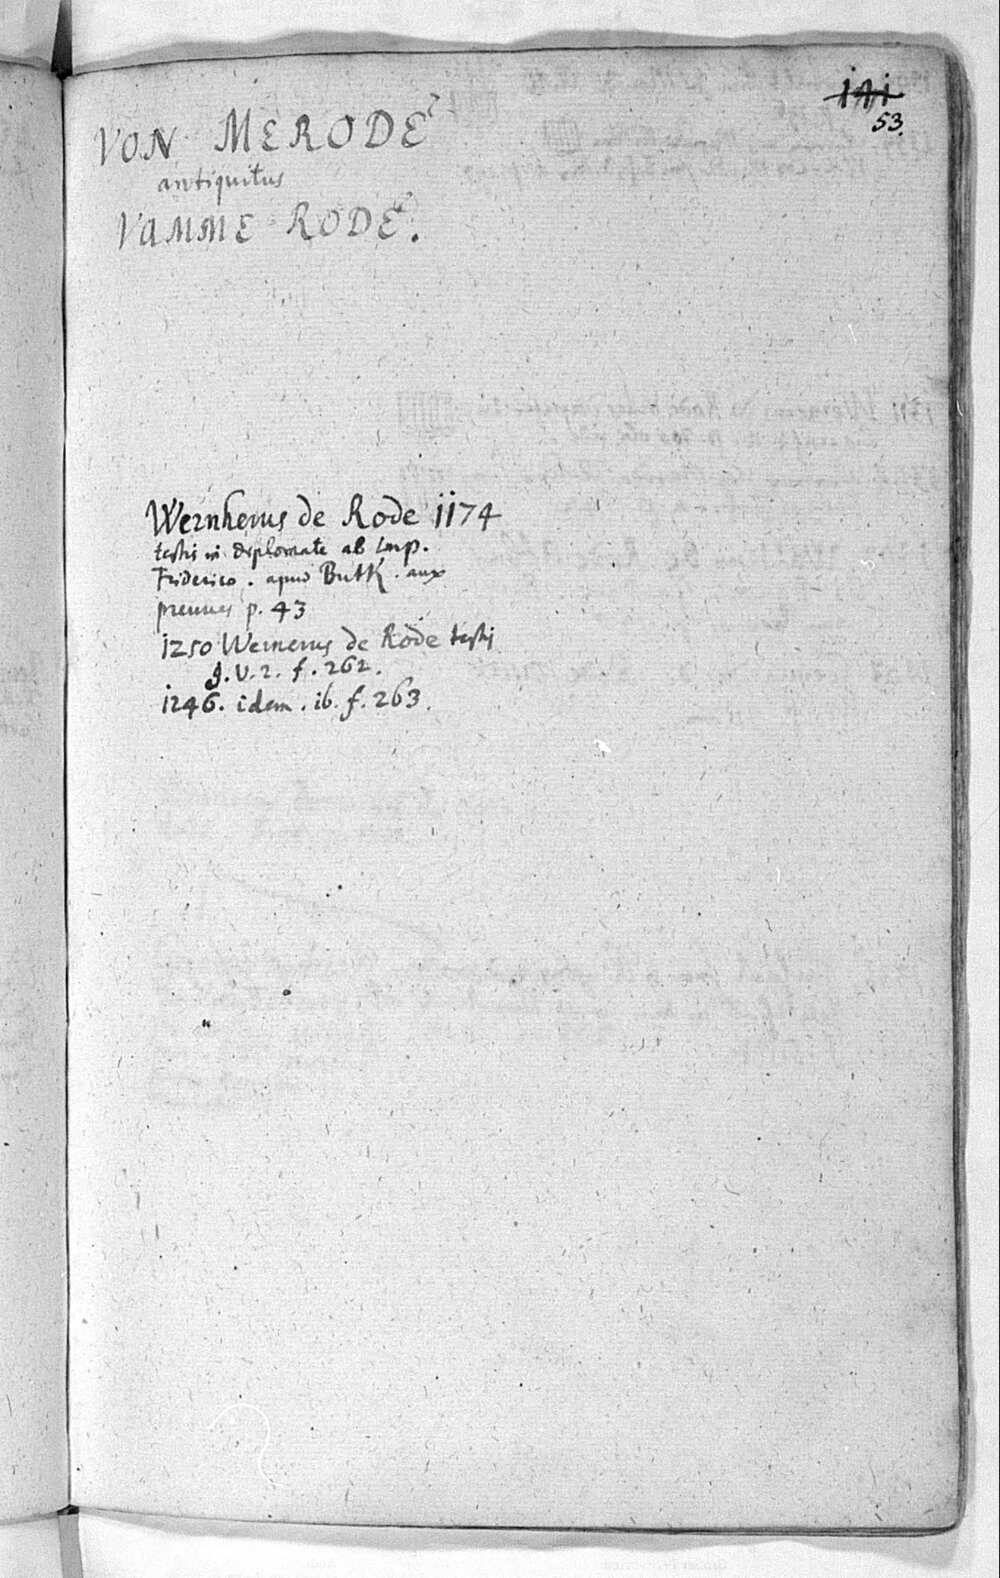 141
53.
VON MERODE
antiquitus
VAMME RODE.
Wernherus de Rode 1174
testis in diplomate ab Imp.
Friderico. apud Butk. aux
preuves p. 43
1250 Wernerus de Rode testis
J. V. 2. f. 262.
1246. idem. ib. f. 263.